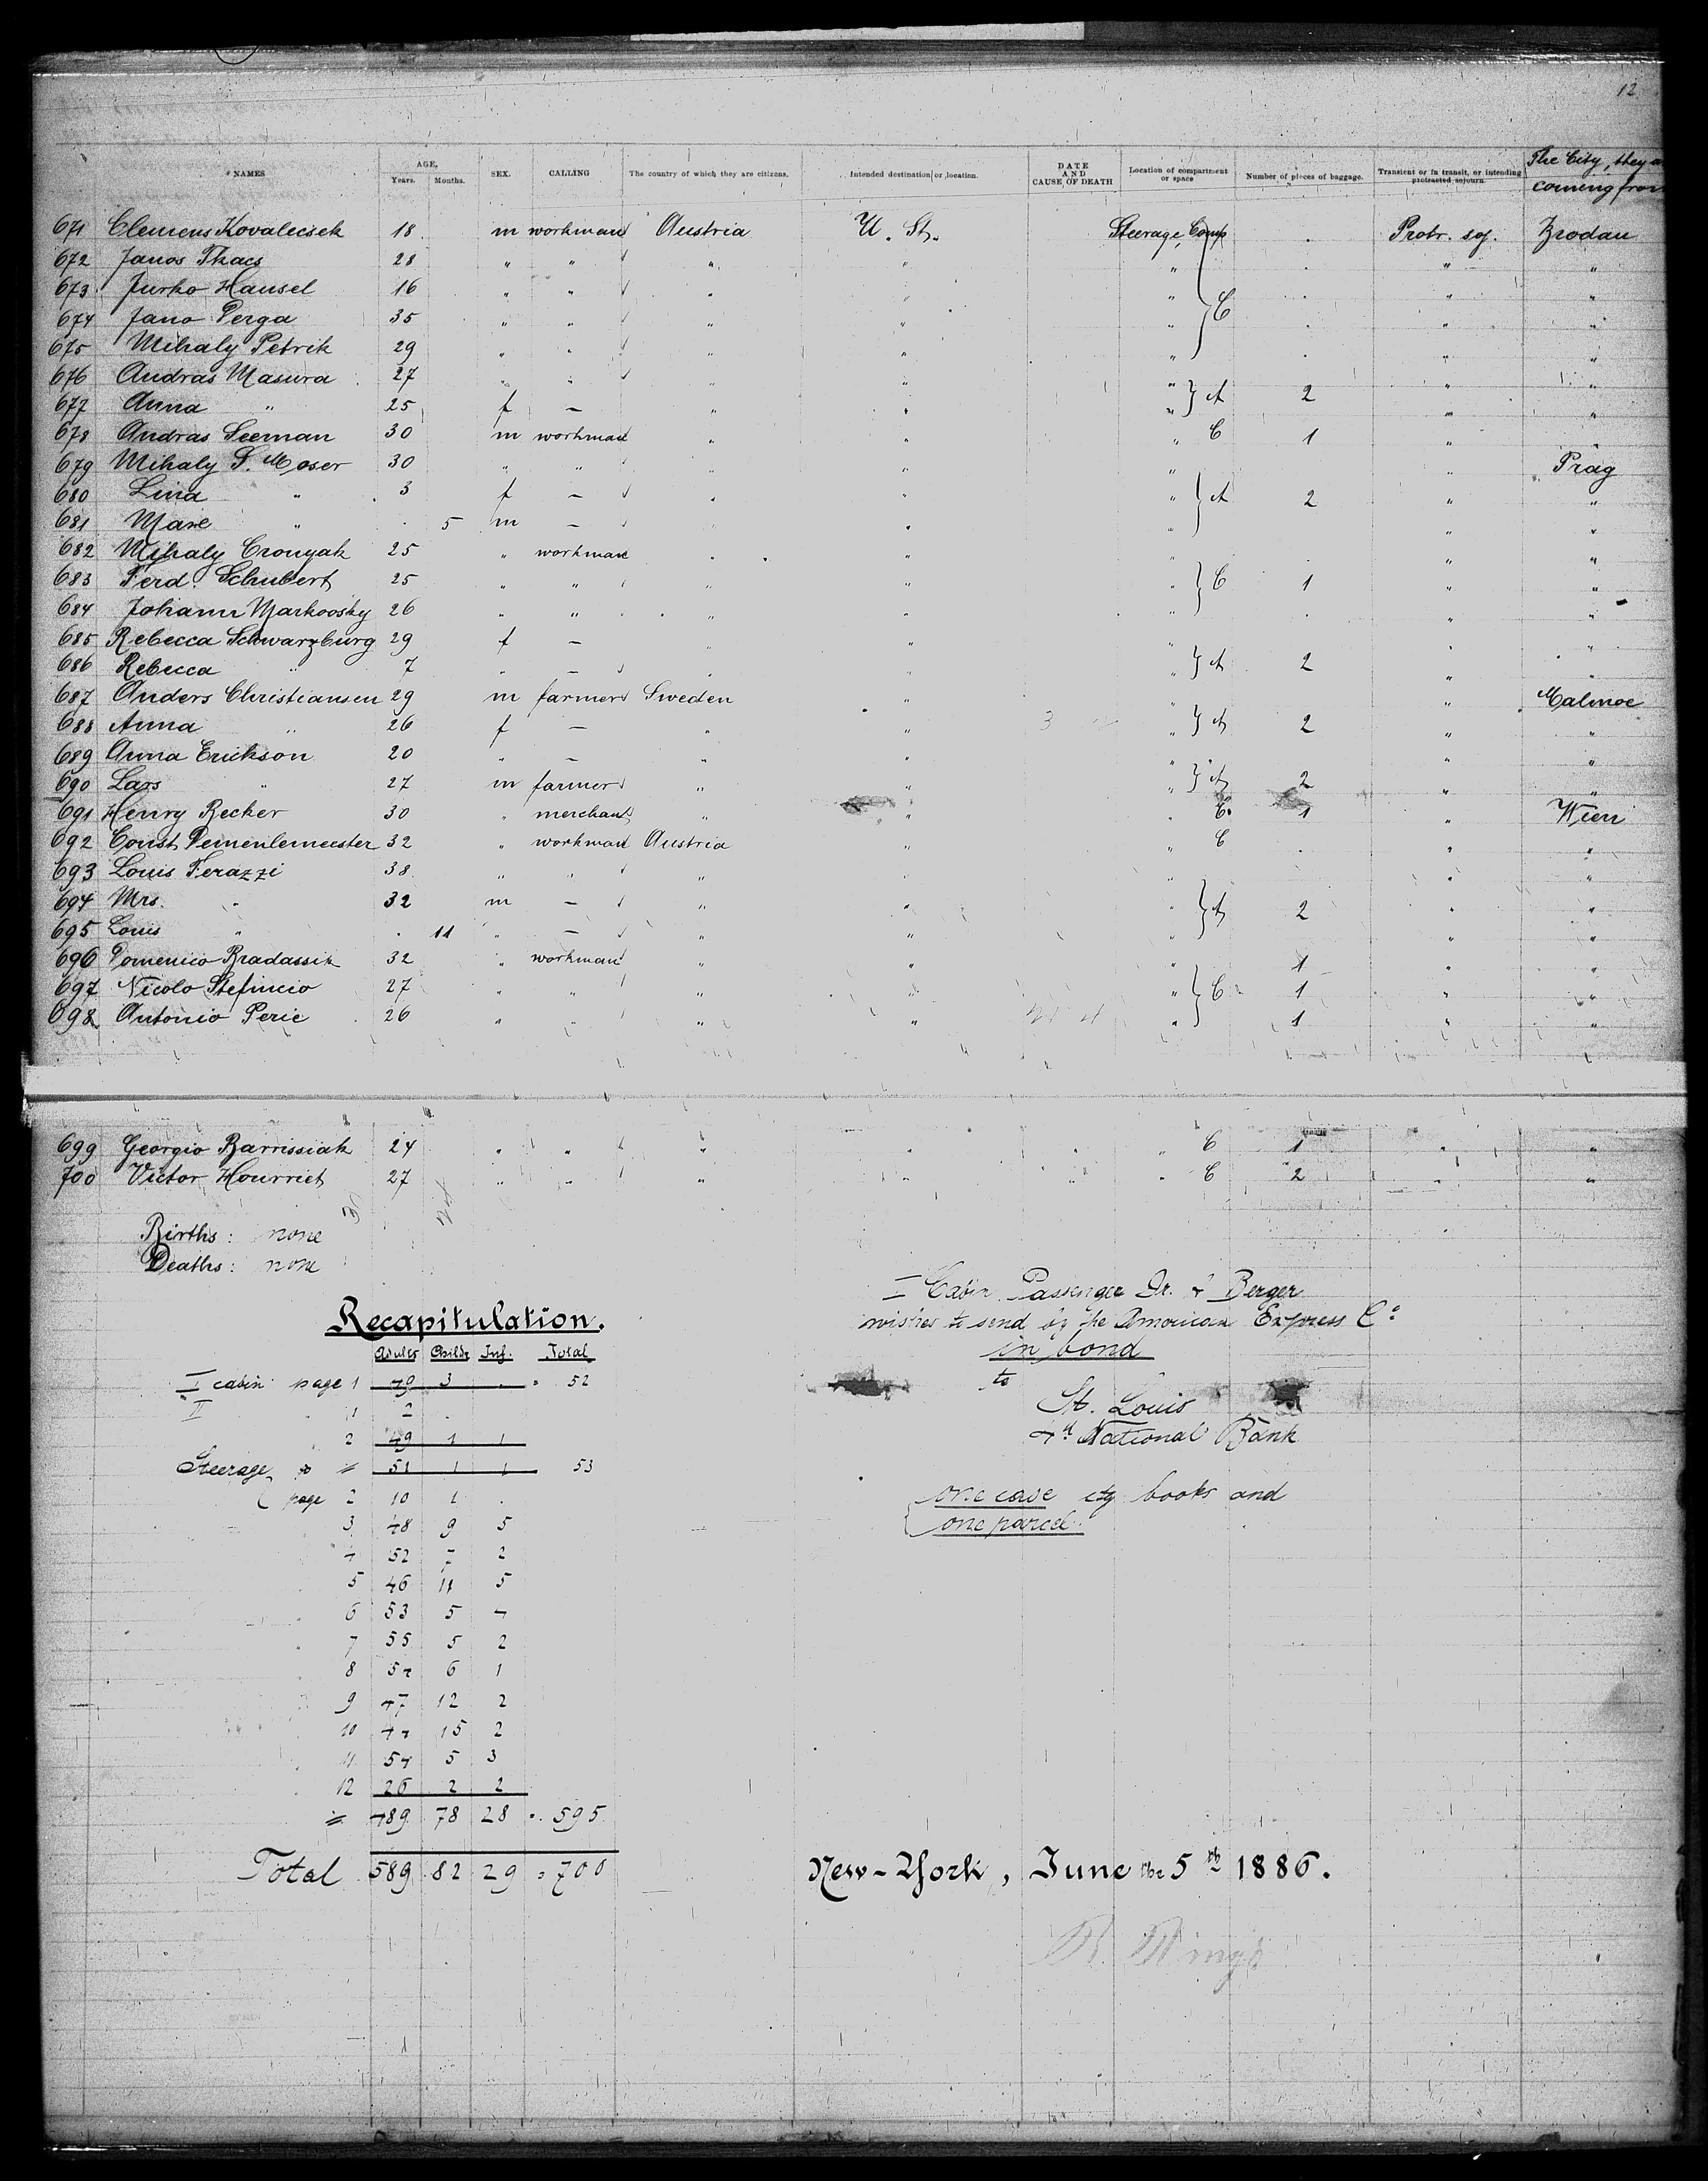 12
NAMES AGE, Years. Months. SEX. CALLING The country of which they are citizens. Intended destination or location. DATE AND CAUSE OF DEATH Location of compartment or space Number of pieces of baggage. Transient or in transit, or intending protracted sojourn. The City, they a coming from
671 Clemens Kovalecsek 18 m workman Austria U. St. Steerage, Comp Protr. soj. Zrodau
672 Janos Tkacs 28 " " " " " " "
673 Jurko Hansel 16 " " " " " " "
674 Jano Perga 35 " " " " " } C " "
675 Mihaly Petrik 29 " " " " " " "
676 Andras Masura 27 " " " " " " "
677 Anna " 25 f — " " " } A 2 " "
678 Andras Seeman 30 m workman " " " C 1 " "
679 Mihaly S. Moser 30 " " " " " " Prag
680 Lina " 3 f — " " " } A 2 " "
681 Maxe " 5 m — " " " " "
682 Mihaly Cronyak 25 " workman " " " " "
683 Ferd. Schubert 25 " " " " " } C 1 " "
684 Johann Markovsky 26 " " " " " " "
685 Rebecca Schwarzburg 29 f — " " " " "
686 Rebecca " 7 " — " " " } A 2 " "
687 Anders Christiansen 29 m farmer Sweden " " " Malmoe
688 Anna " 26 f — " " " } A 2 " "
689 Anna Erickson 20 " — " " " " "
690 Lars " 27 m farmer " " " } A 2 " "
691 Henry Becker 30 " merchant " " " C. 1 " Wien
692 Const. 32 " workman Austria " " C " "
693 Louis Ferazzi 38 " " " " " " "
694 Mrs. " 32 m — " " " } A 2 " "
695 Louis " 11 " — " " " " "
696 Domenico Bradassik 32 " workman " " " 1 " "
697 Nicolo Stefincio 27 " " " " " } C 1 " "
698 Antonio Peric 26 " " " " " 1 " "
699 Georgio Barrissiak 24 " " " " " " C 1 " "
700 Victor Hourriet 27 " " " " " " C 2 " "
Births: none
Deaths: none
I Cabin Passenger Dr. & Berger
wishes to send by the American Express Co
in bond
to
St. Louis
4th National Bank
one case ctg books and
one parcel.
Recapitulation.
Adults Childr Inf. Total
I cabin page 1 49 3 . = 52
II " 1 2 .
2 49 1 1
51 1 1 = 53
Steerage
page 2 10 1 .
3 48 9 5
4 52 7 2
5 46 11 5
6 53 5 4
7 55 5 2
8 54 6 1
9 47 12 2
10 44 15 2
11 54 5 3
12 26 2 2
= 489 78 28 = 595
Total 589 82 29 = 700
New-York, June the 5th 1886.